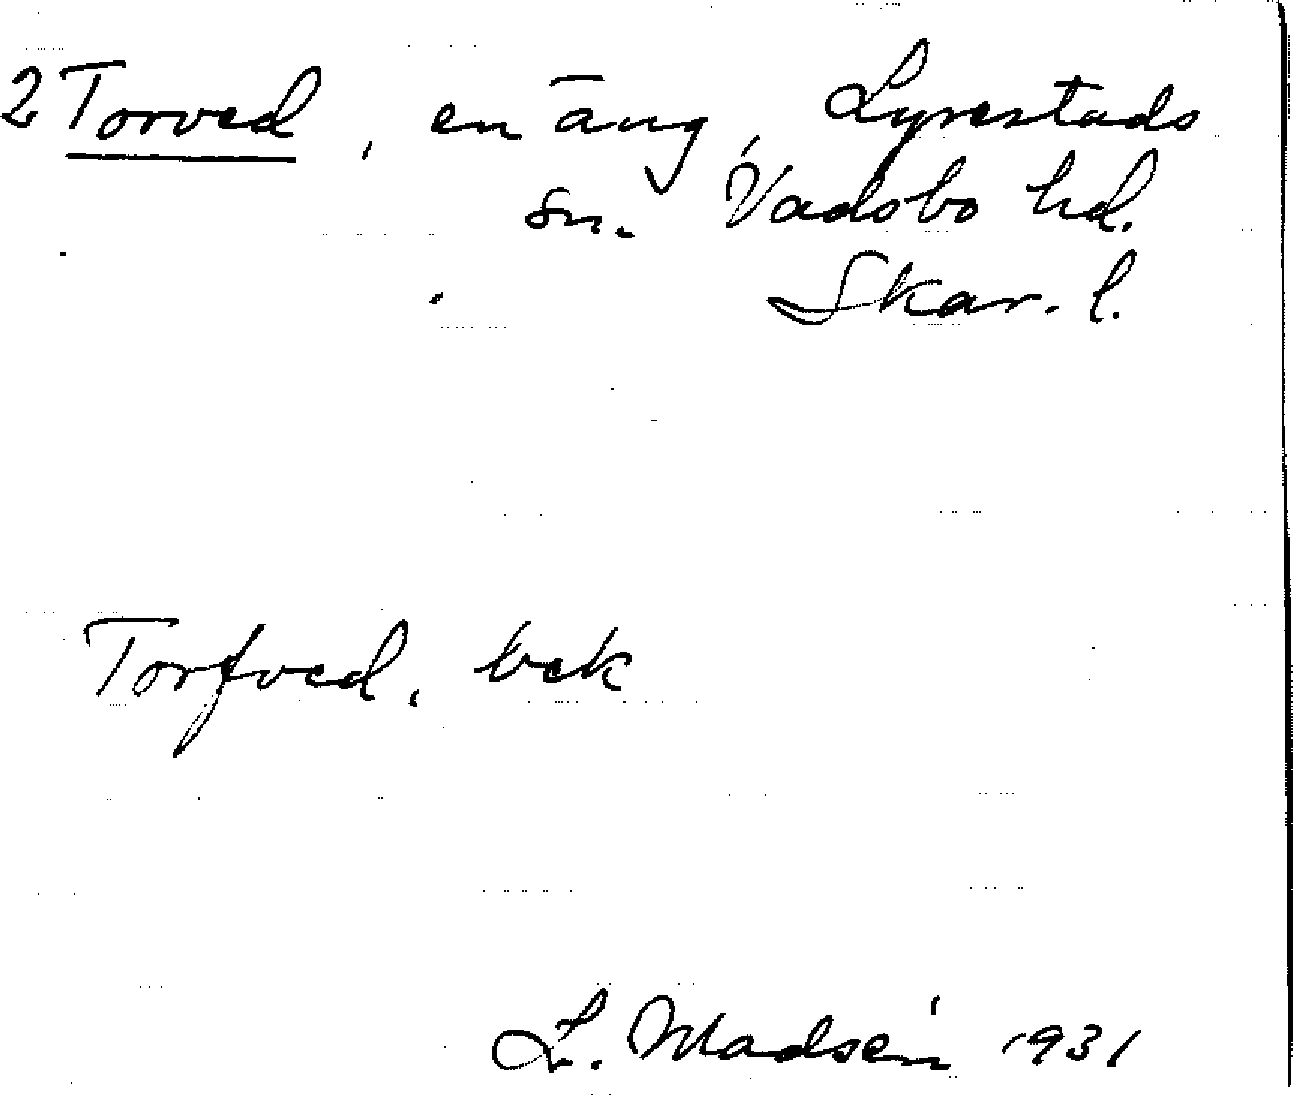 2 Torved, en äng, Lyrestads
sn. Vadsbo hd.
Skar. l.
Torfved, bek
L. Madsén 1931